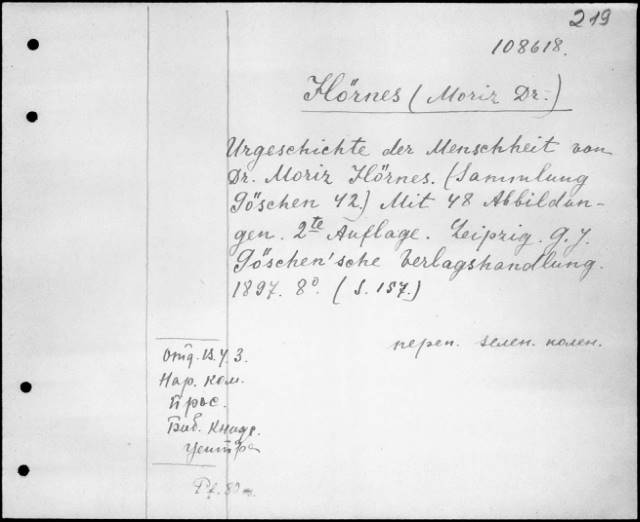 219
108618.
Hörnes (Moriz Dr.)
Urgeschichte der Menschheit von
Dr. Moriz Hörnes. (Sammlung
Göschen 42.) Mit 48 Abbildun-
gen. 2te Auflage. Leipzig. G. J.
Göschen'sche Verlagshandlung.
1897. 8°. (S. 157.)
переп. зелен. колен.
Отд. В. У. З.
Нар. Ком.
Прос.
Биб. Книдс.
Центра
Pf. 80